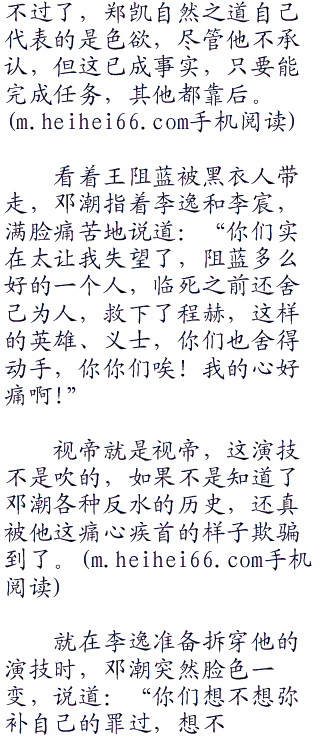 不过了，郑凯自然之道自己
代表的是色欲，尽管他不承
认，但这已成事实，只要能
完成任务，其他都靠后。
(m.heihei66.com手机阅读)
看着王阻蓝被黑衣人带
走，邓潮指着李逸和李宸，
满脸痛苦地说道：“你们实
在太让我失望了，阻蓝多么
好的一个人，临死之前还舍
己为人，救下了程赫，这样
的英雄、义士，你们也舍得
动手，你你们唉！我的心好
痛啊！”
视帝就是视帝，这演技
不是吹的，如果不是知道了
邓潮各种反水的历史，还真
被他这痛心疾首的样子欺骗
到了。(m.heihei66.com手机
阅读)
就在李逸准备拆穿他的
演技时，邓潮突然脸色一
变，说道：“你们想不想弥
补自己的罪过，想不